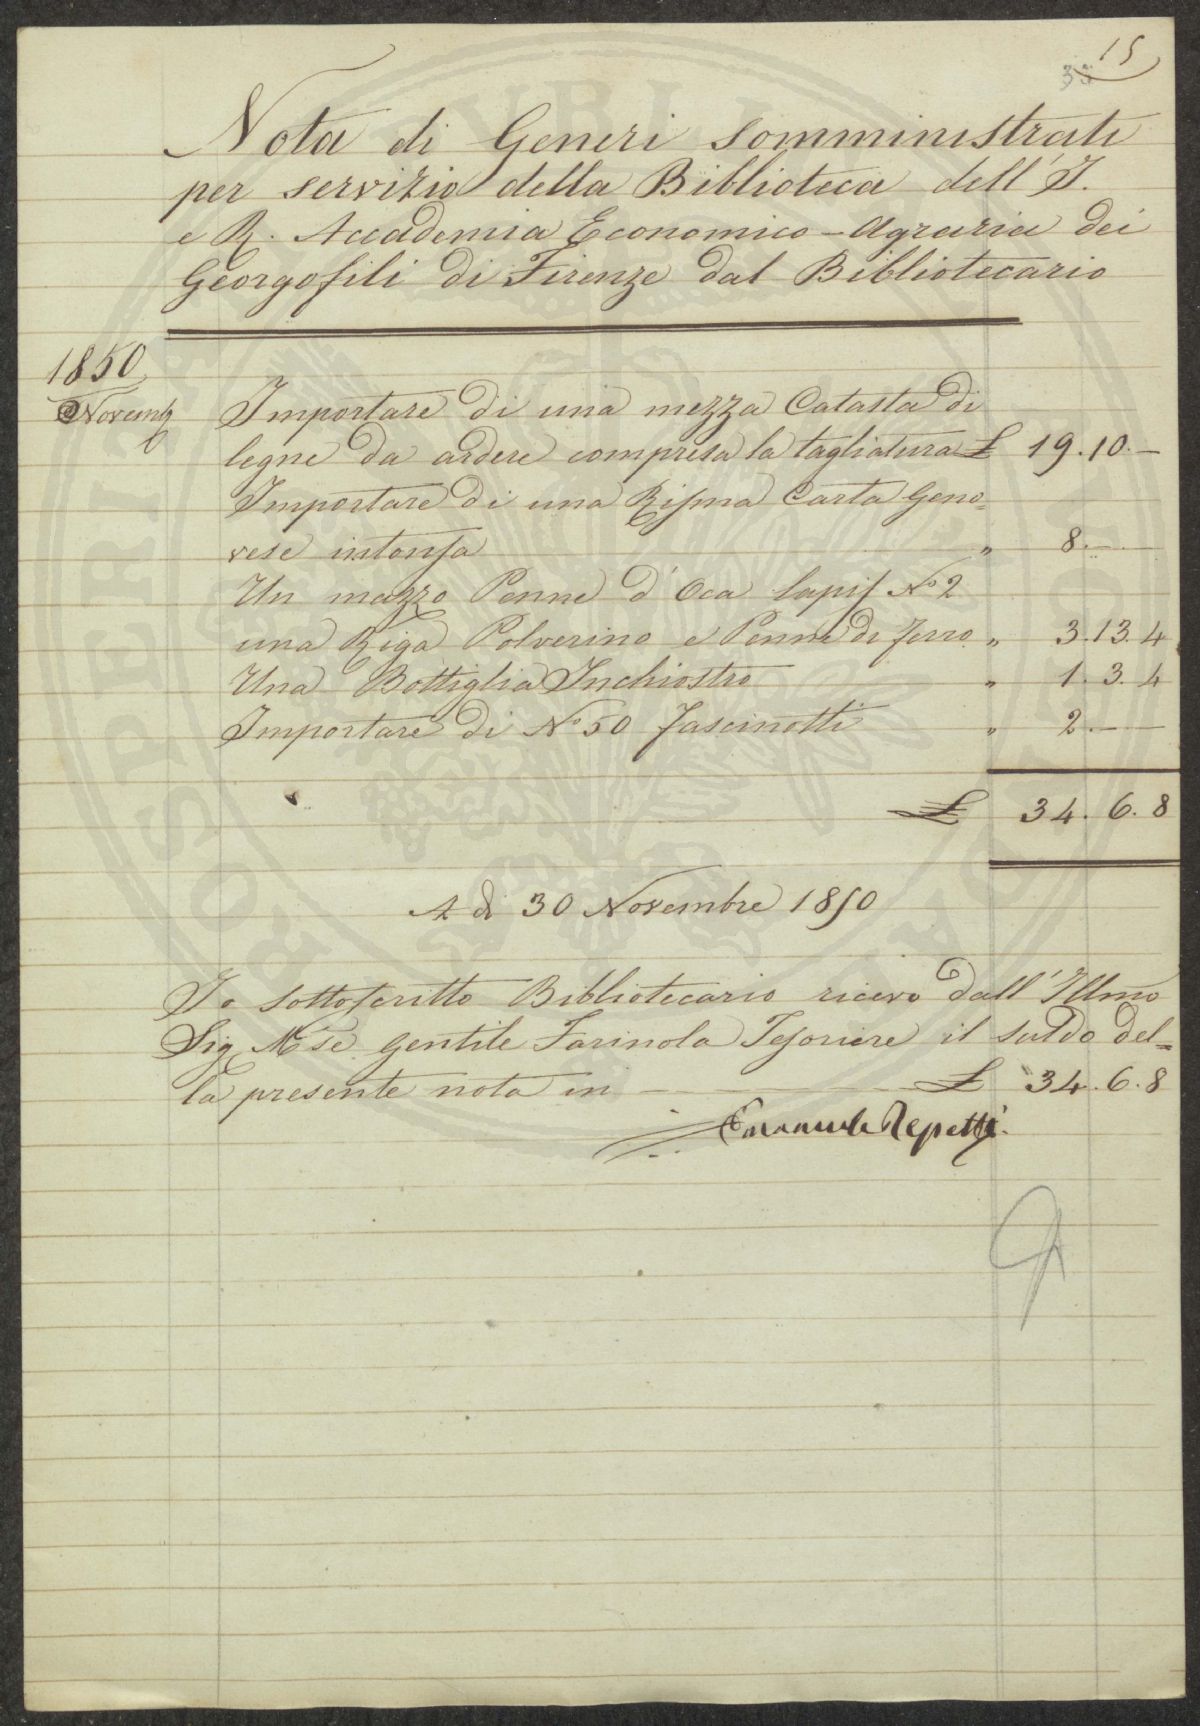 15
35
Nota di Generi somministrati
per servizio della Biblioteca dell'I.
e R. Accademia Economico-Agraria dei
Georgofili di Firenze dal Bibliotecario
1850
Novemb
Importare di una mezza Catasta di
legne da ardere compresa la tagliatura £ 19.10.—
Importare di una Risma Carta Geno=
vese intonsa " 8.—
Un mazzo Penne d'Oca lapis N° 2
una Riga Polverino e Penne di ferro " 3.13.4
Una Bottiglia Inchiostro " 1.3.4
Importare di N° 50 fascinotti " 2.—
£ 34.6.8
A dì 30 Novembre 1850
Io sottoscritto Bibliotecario ricevo dall'Illmo
Sig. Mse Gentile Farinola Tesoriere il saldo del=
la presente nota in £ 34.6.8
Emanuele Repetti